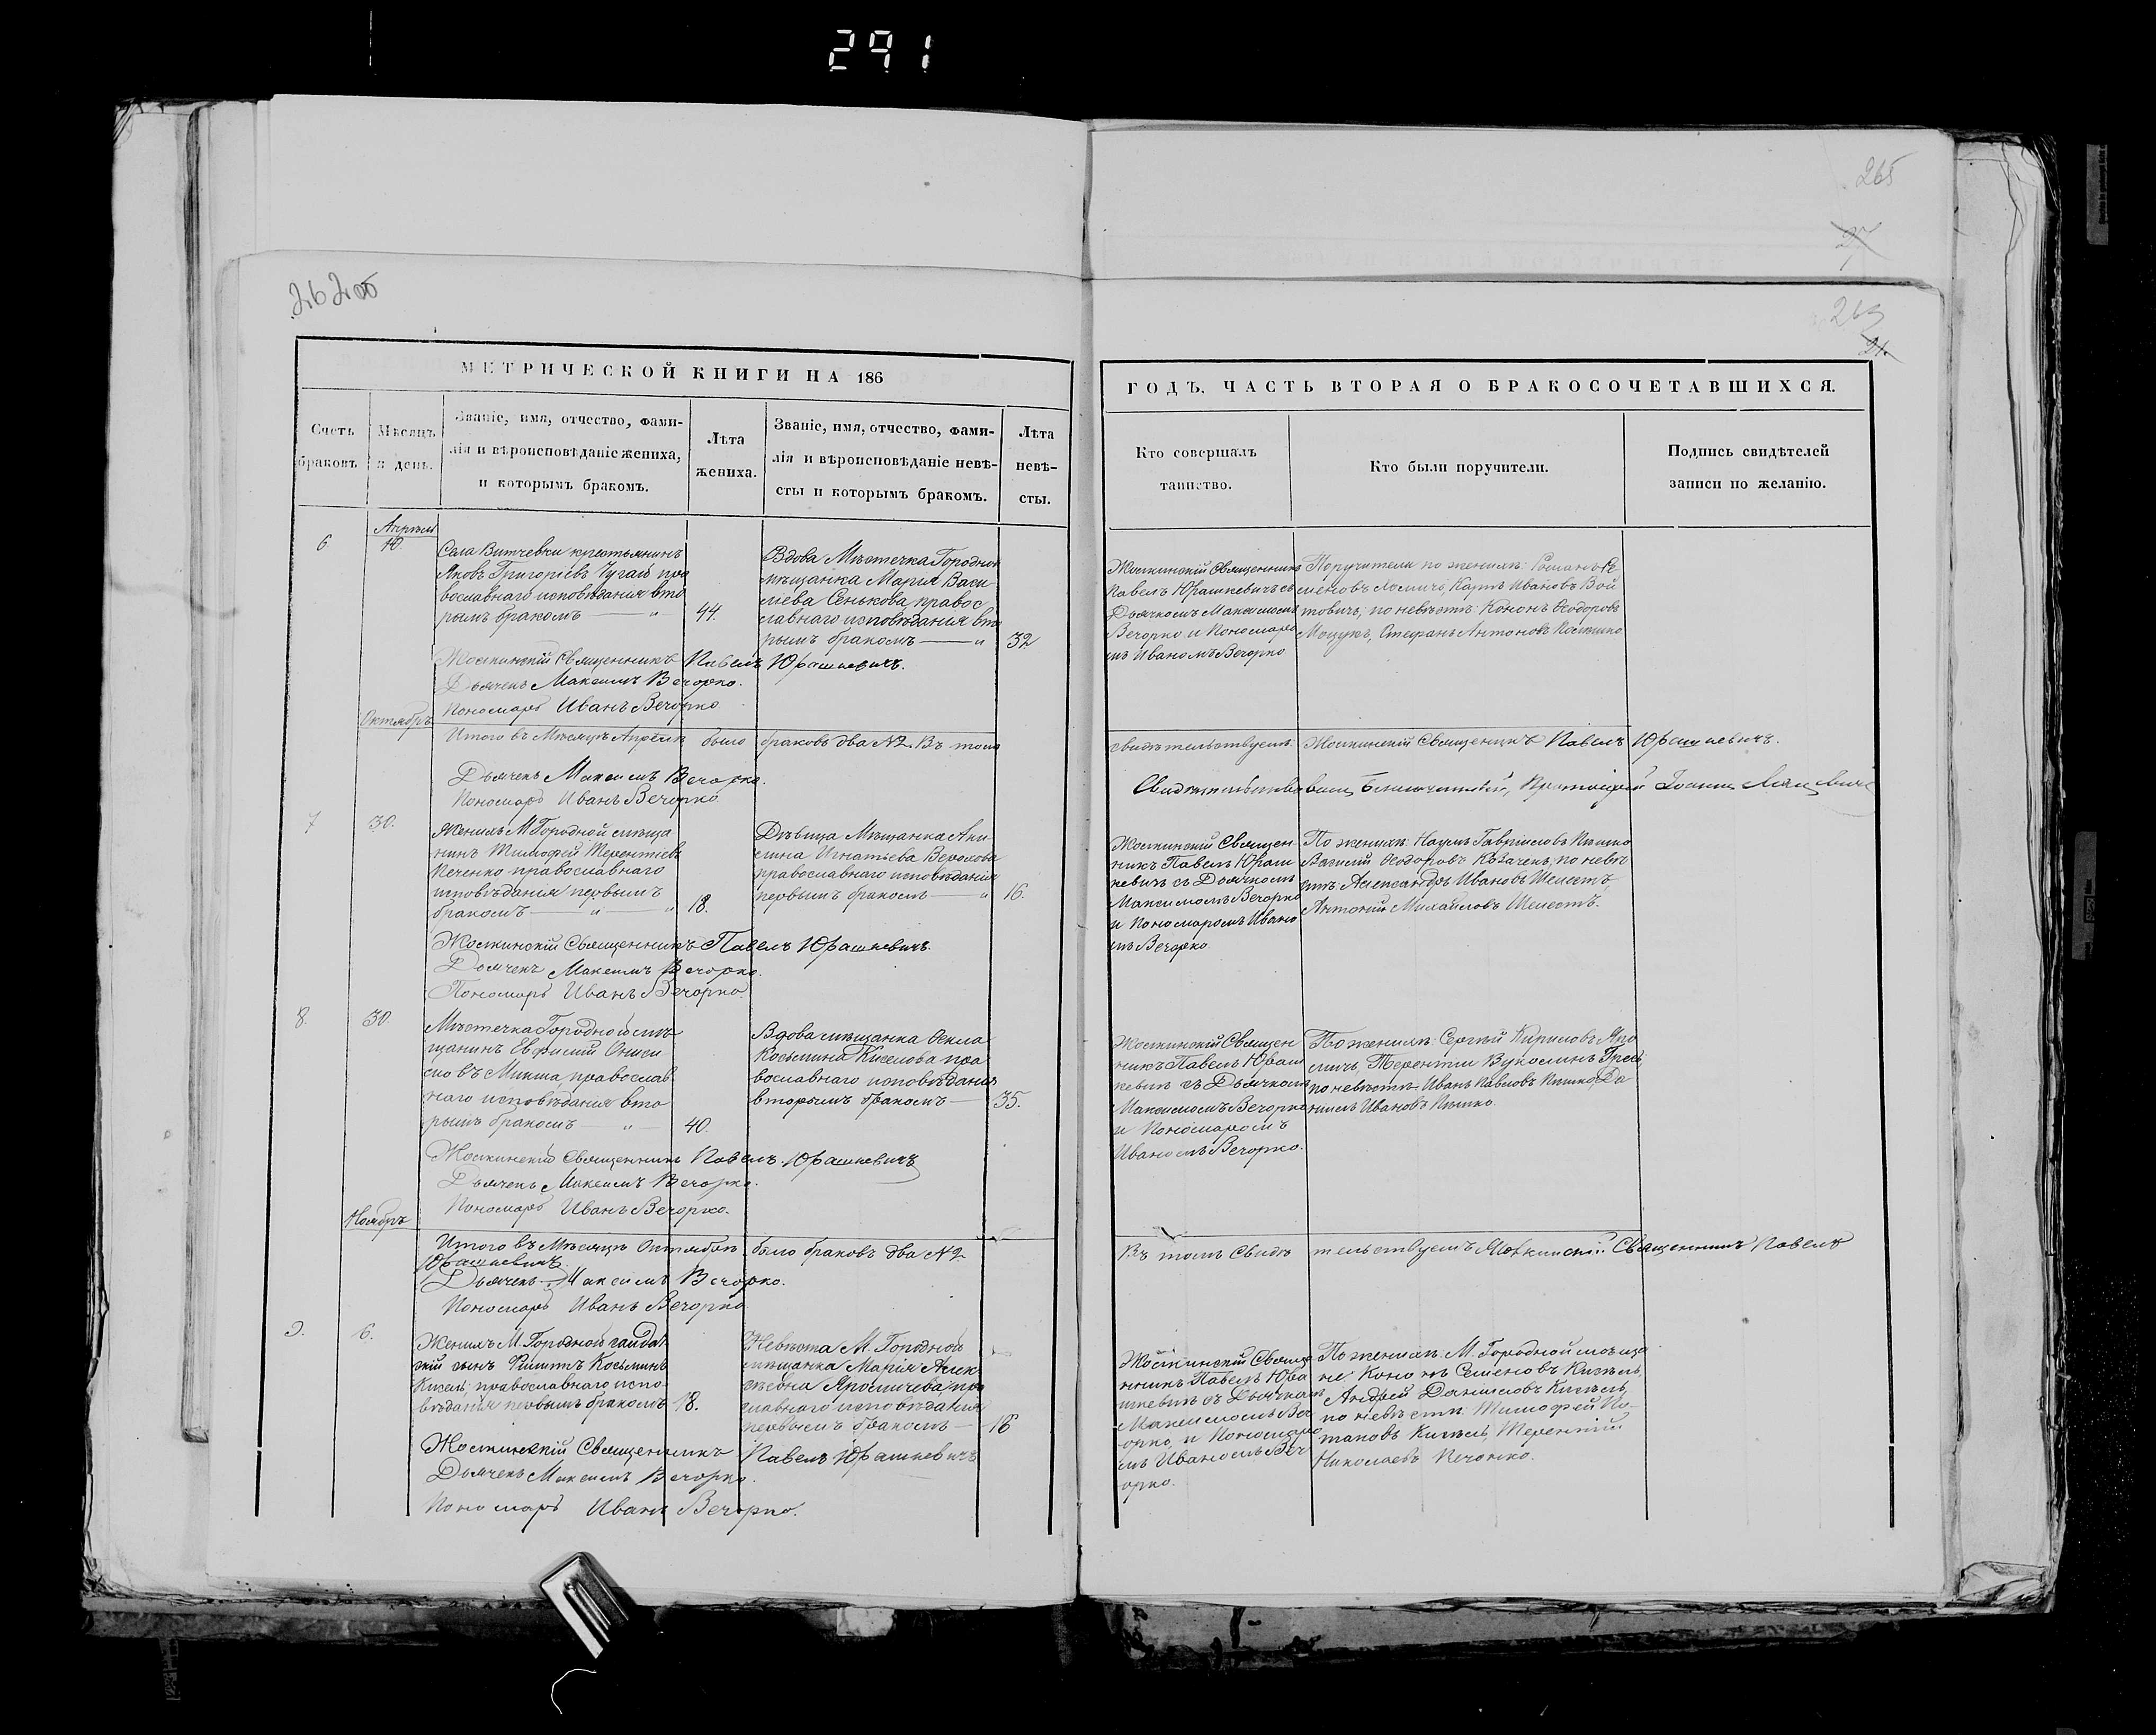 291
265
27
26 206
МЕТРИЧЕСКОЙ КНИГИ НА 186
ГОДЪ, ЧАСТЬ ВТОРАЯ О БРАКОСОЧЕТАВШИХСЯ.
Счетъ браковъ.
Мѣсяцъ и день.
Званіе, имя, отчество, фами-
лія и вѣроисповѣданіе жениха,
и которымъ бракомъ.
Лѣта
жениха.
Званіе, имя, отчество, фами-
лія и вѣроисповѣданіе невѣ-
сты и которымъ бракомъ.
Лѣта
невѣ-
сты.
Кто совершалъ
таинство.
Кто были поручители.
Подпись свидѣтелей
записи по желанію.
Апрѣль
6 10.
Села Витчевки крестьянинъ
Яковъ Григоріевъ Чугай пра
вославнаго исповѣданія вто
рымъ бракомъ — „ 44.
Вдова Мѣстечка Городной
мѣщанка Марія Васи
лiева Сенькова правос
лавнаго исповѣданія вто
рымъ бракомъ — „ 32
Павелъ Юрашкевичъ съ
Дьячкомъ Максимомъ
Вечорко и Пономаре
мъ Иваномъ Вечорко
Поручители по женихѣ: Романъ
Карпъ Ивановъ Вой
товичъ; по невѣстѣ: Кононъ Ѳеодоровъ
Мощукъ, Стефанъ Антоновъ
Священникъ Павелъ Юрашкевичъ.
Дьячекъ Максимъ Вечорко.
Пономарь Иванъ Вечорко
Октябрь
Итого въ Мѣсяцѣ Апрѣлѣ было браковъ два №2. Въ томъ
свидѣтельствуемъ: Священникъ Павелъ Юрашкевичъ.
Дьячекъ Максимъ Вечорко.
Пономарь Иванъ Вечорко.
7 30.
Женихъ М. Городной мѣща
нинъ Тимофей Терентіевъ
Печенко православнаго
исповѣданія первымъ
бракомъ — „ — „ 18.
Дѣвица Мѣщанка Аки
лина Игнатьева
православнаго исповѣданія
первымъ бракомъ — „ 16.
Священ-
никъ Павелъ Юраш
кевичъ съ Дьячкомъ
Максимомъ Вечорко
и Пономаромъ Ивано
мъ Вечорко.
По женихѣ: Наумъ Гавріиловъ
Василій Ѳеодоровъ Козачекъ, по невѣ
стѣ: Александръ Ивановъ Шелестъ,
Антоній Михайловъ Шелестъ.
Священникъ Павелъ Юрашкевичъ.
Дьячекъ Максимъ Вечорко.
Пономарь Иванъ Вечорко.
8. 30
Мѣстечка Городной мѣ
щанинъ
православ
наго исповѣданія вто
рымъ бракомъ — „ — 40.
Вдова мѣщанка Ѳекла
Козьмина Киселова пра
вославнаго исповѣданія
вторымъ бракомъ — 35.
Священ
никъ Павелъ Юраш
кевичъ съ Дьячкомъ
Максимомъ Вечорко
и Пономаромъ
Иваномъ Вечорко.
По женихѣ: Сергѣй Кириловъ
Терентій
по невѣстѣ: Иванъ Павловъ Да
ніилъ Ивановъ
Священникъ Павелъ Юрашкевичъ
Дьячекъ Максимъ Вечорко.
Пономарь Иванъ Вечорко.
Ноябрь
Итого въ Мѣсяцѣ Октябрѣ было браковъ два №2.
Въ томъ свидѣтельствуемъ Священникъ Павелъ
Юрашкевичъ
Дьячекъ Максимъ Вечорко.
Пономарь Иванъ Вечорко
9. 6.
Женихъ М. Городной
сынъ Филиппъ Козьминъ
Кисель; православнаго испо
вѣданія первымъ бракомъ 18.
Невѣста М. Городной
мѣщанка Марія Алек
сѣевна
славнаго исповѣданія
первымъ бракомъ — 18
никъ Павелъ Юра
шкевичъ съ Дьячкомъ
Максимомъ Веч
орко, и Пономаре
мъ Иваномъ Веч
орко.
По женихѣ: М. Городной мѣща
не: Кононъ Семеновъ Кисѣль,
Андрей Даниловъ Кисѣль,
по невѣстѣ: Тимофей По-
таповъ Кисѣль, Терентій
Николаевъ Печонко.
Священникъ Павелъ Юрашкевичъ
Дьячекъ Максимъ Вечорко.
Пономарь Иванъ Вечорко.